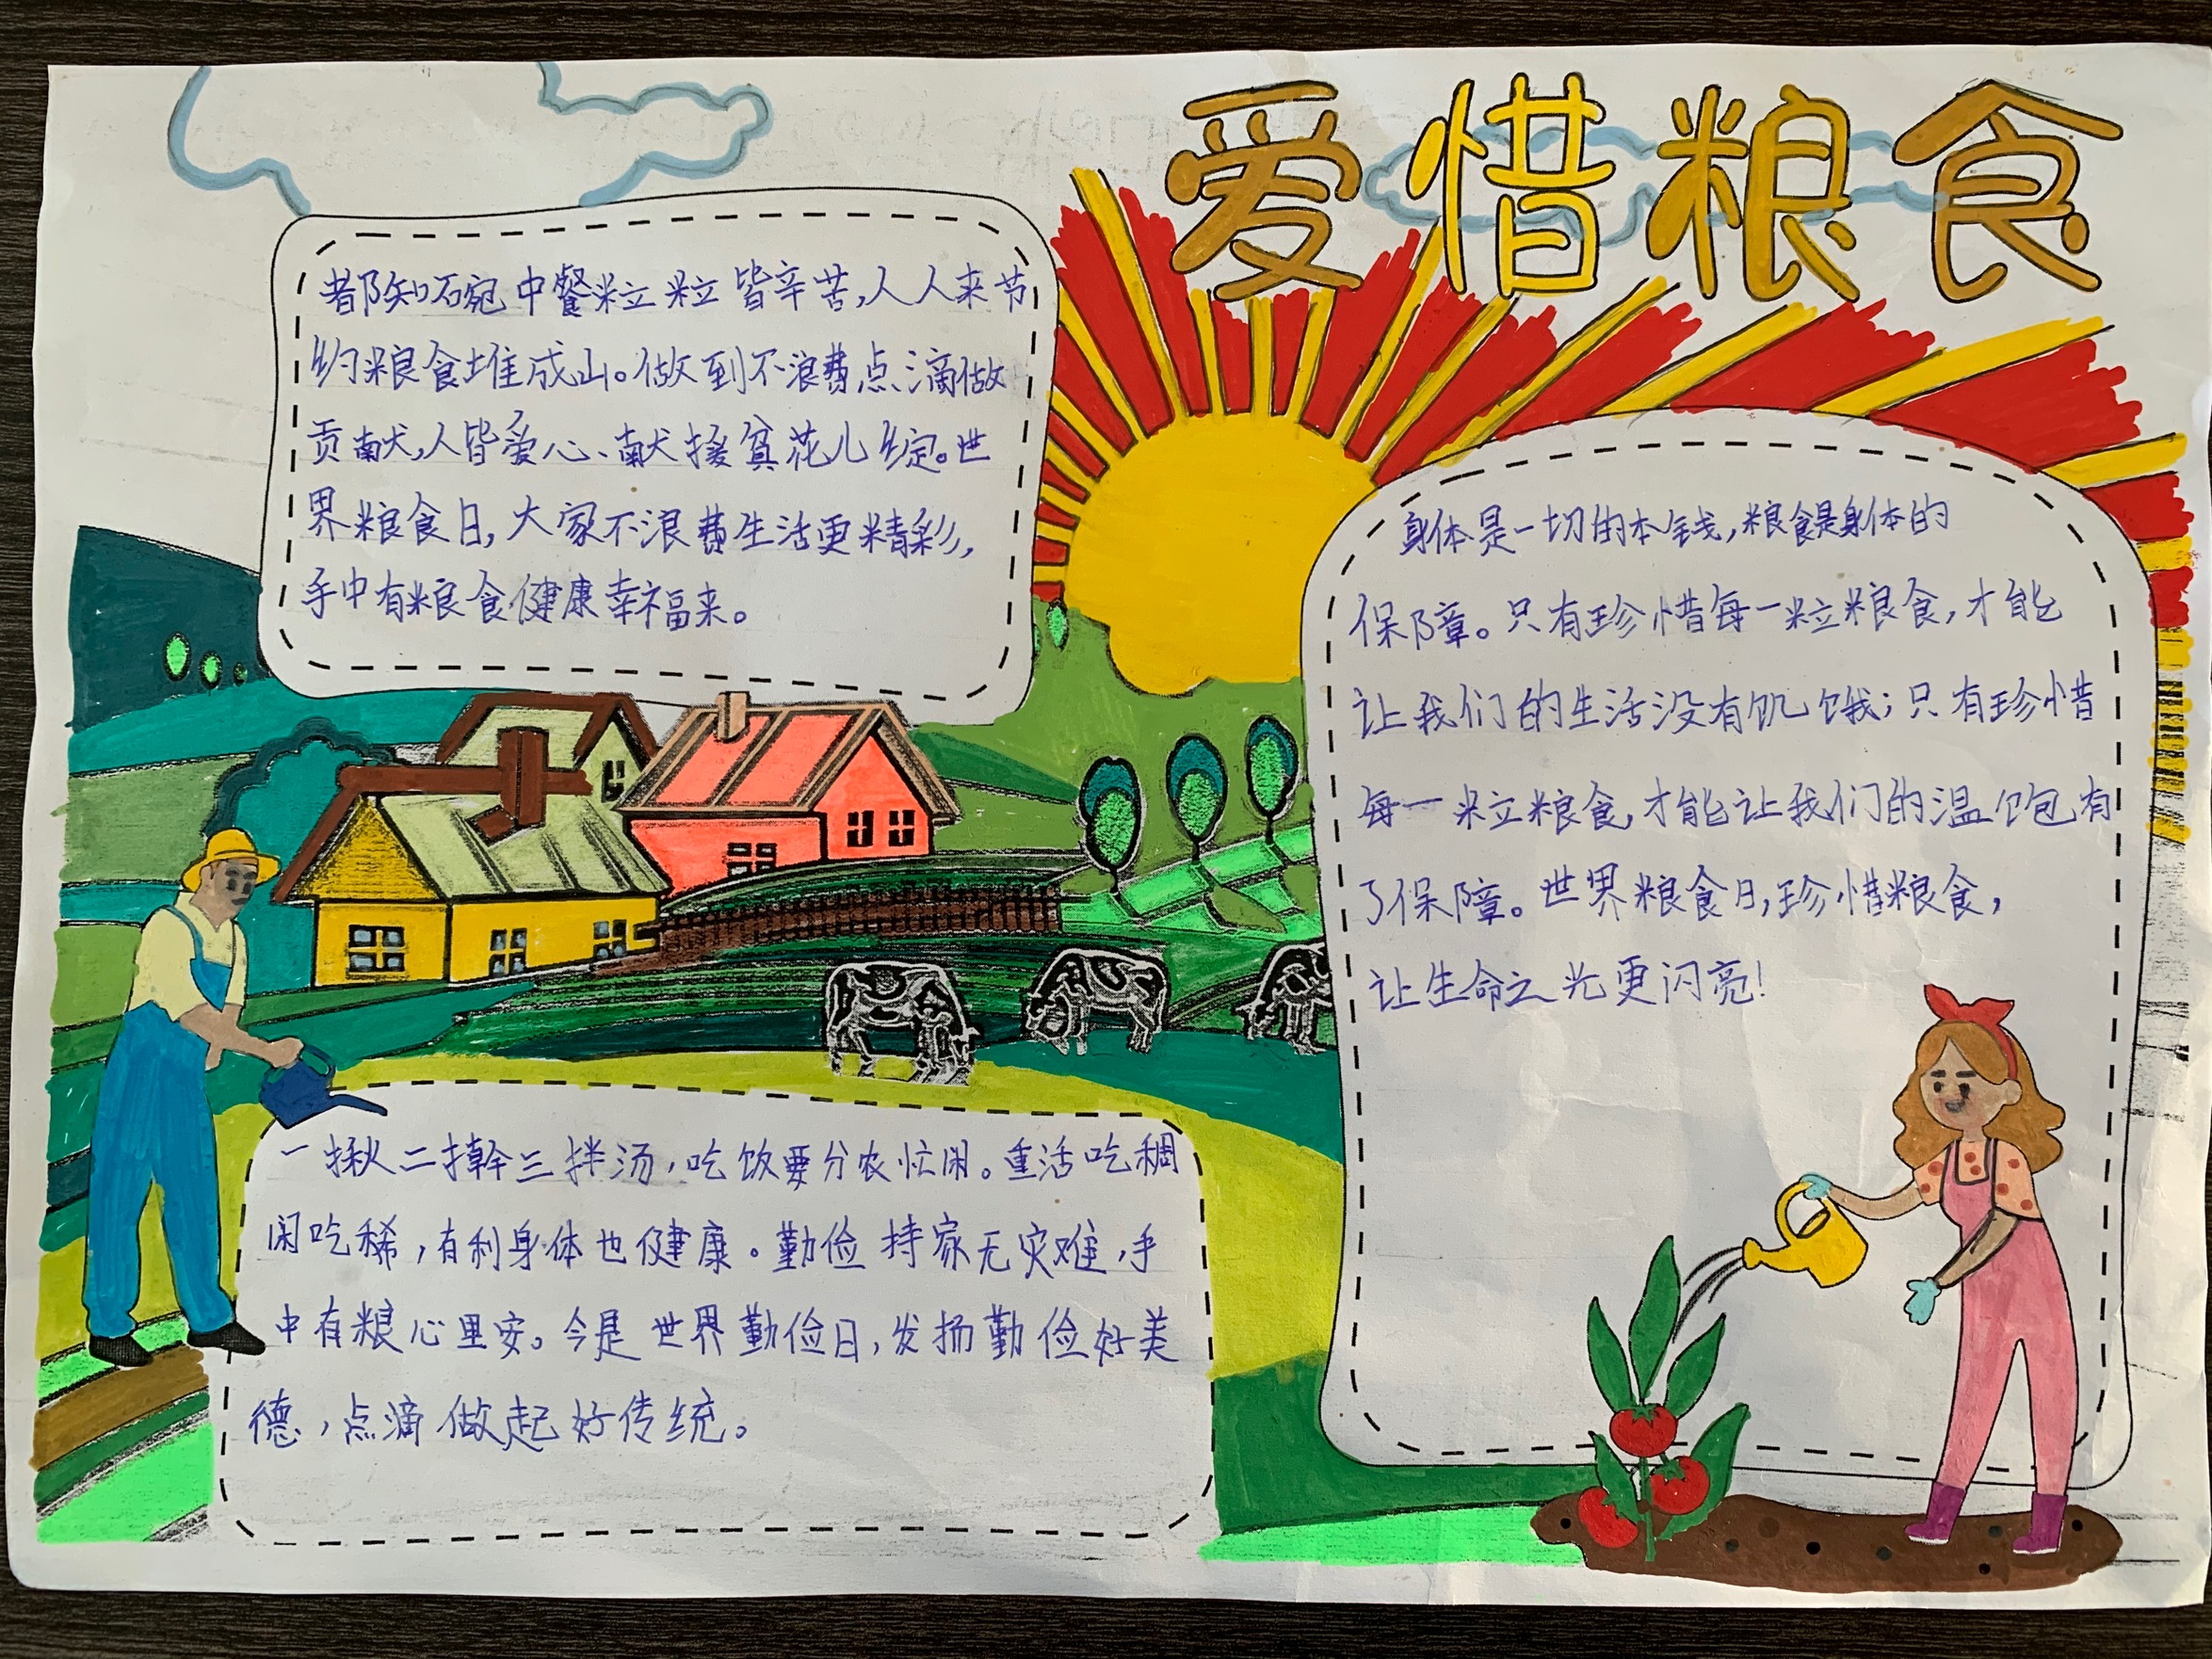 爱惜粮食
都知碗中餐粒粒皆辛苦,人人来节
约粮食堆成山。做到不浪费点滴做
贡献,人皆爱心、献接贫花儿绽。世
界粮食日,大家不浪费生活更精彩,
手中有粮食健康幸福来。
身体是一切的本钱,粮食是身体的
保障。只有珍惜每一粒粮食,才能
让我们的生活没有饥饿;只有珍惜
每一粒粮食,才能让我们的温饱有
了保障。世界粮食日,珍惜粮食,
让生命之光更闪亮!
一揪二擀三拌汤,吃饮要分农忙闲。重活吃稠
闲吃稀,有利身体也健康。勤俭持家无灾难,手
中有粮心里安。今是世界勤俭日,发扬勤俭好美
德,点滴做起好传统。